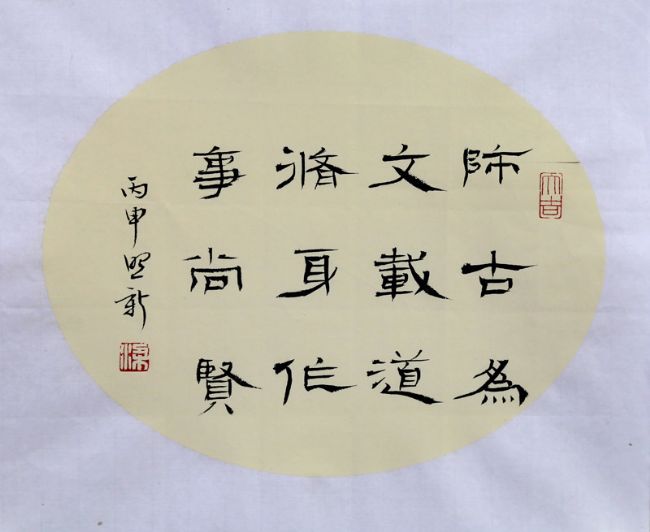 大吉
師古為
文載道
脩身作
事尚賢
丙申照新